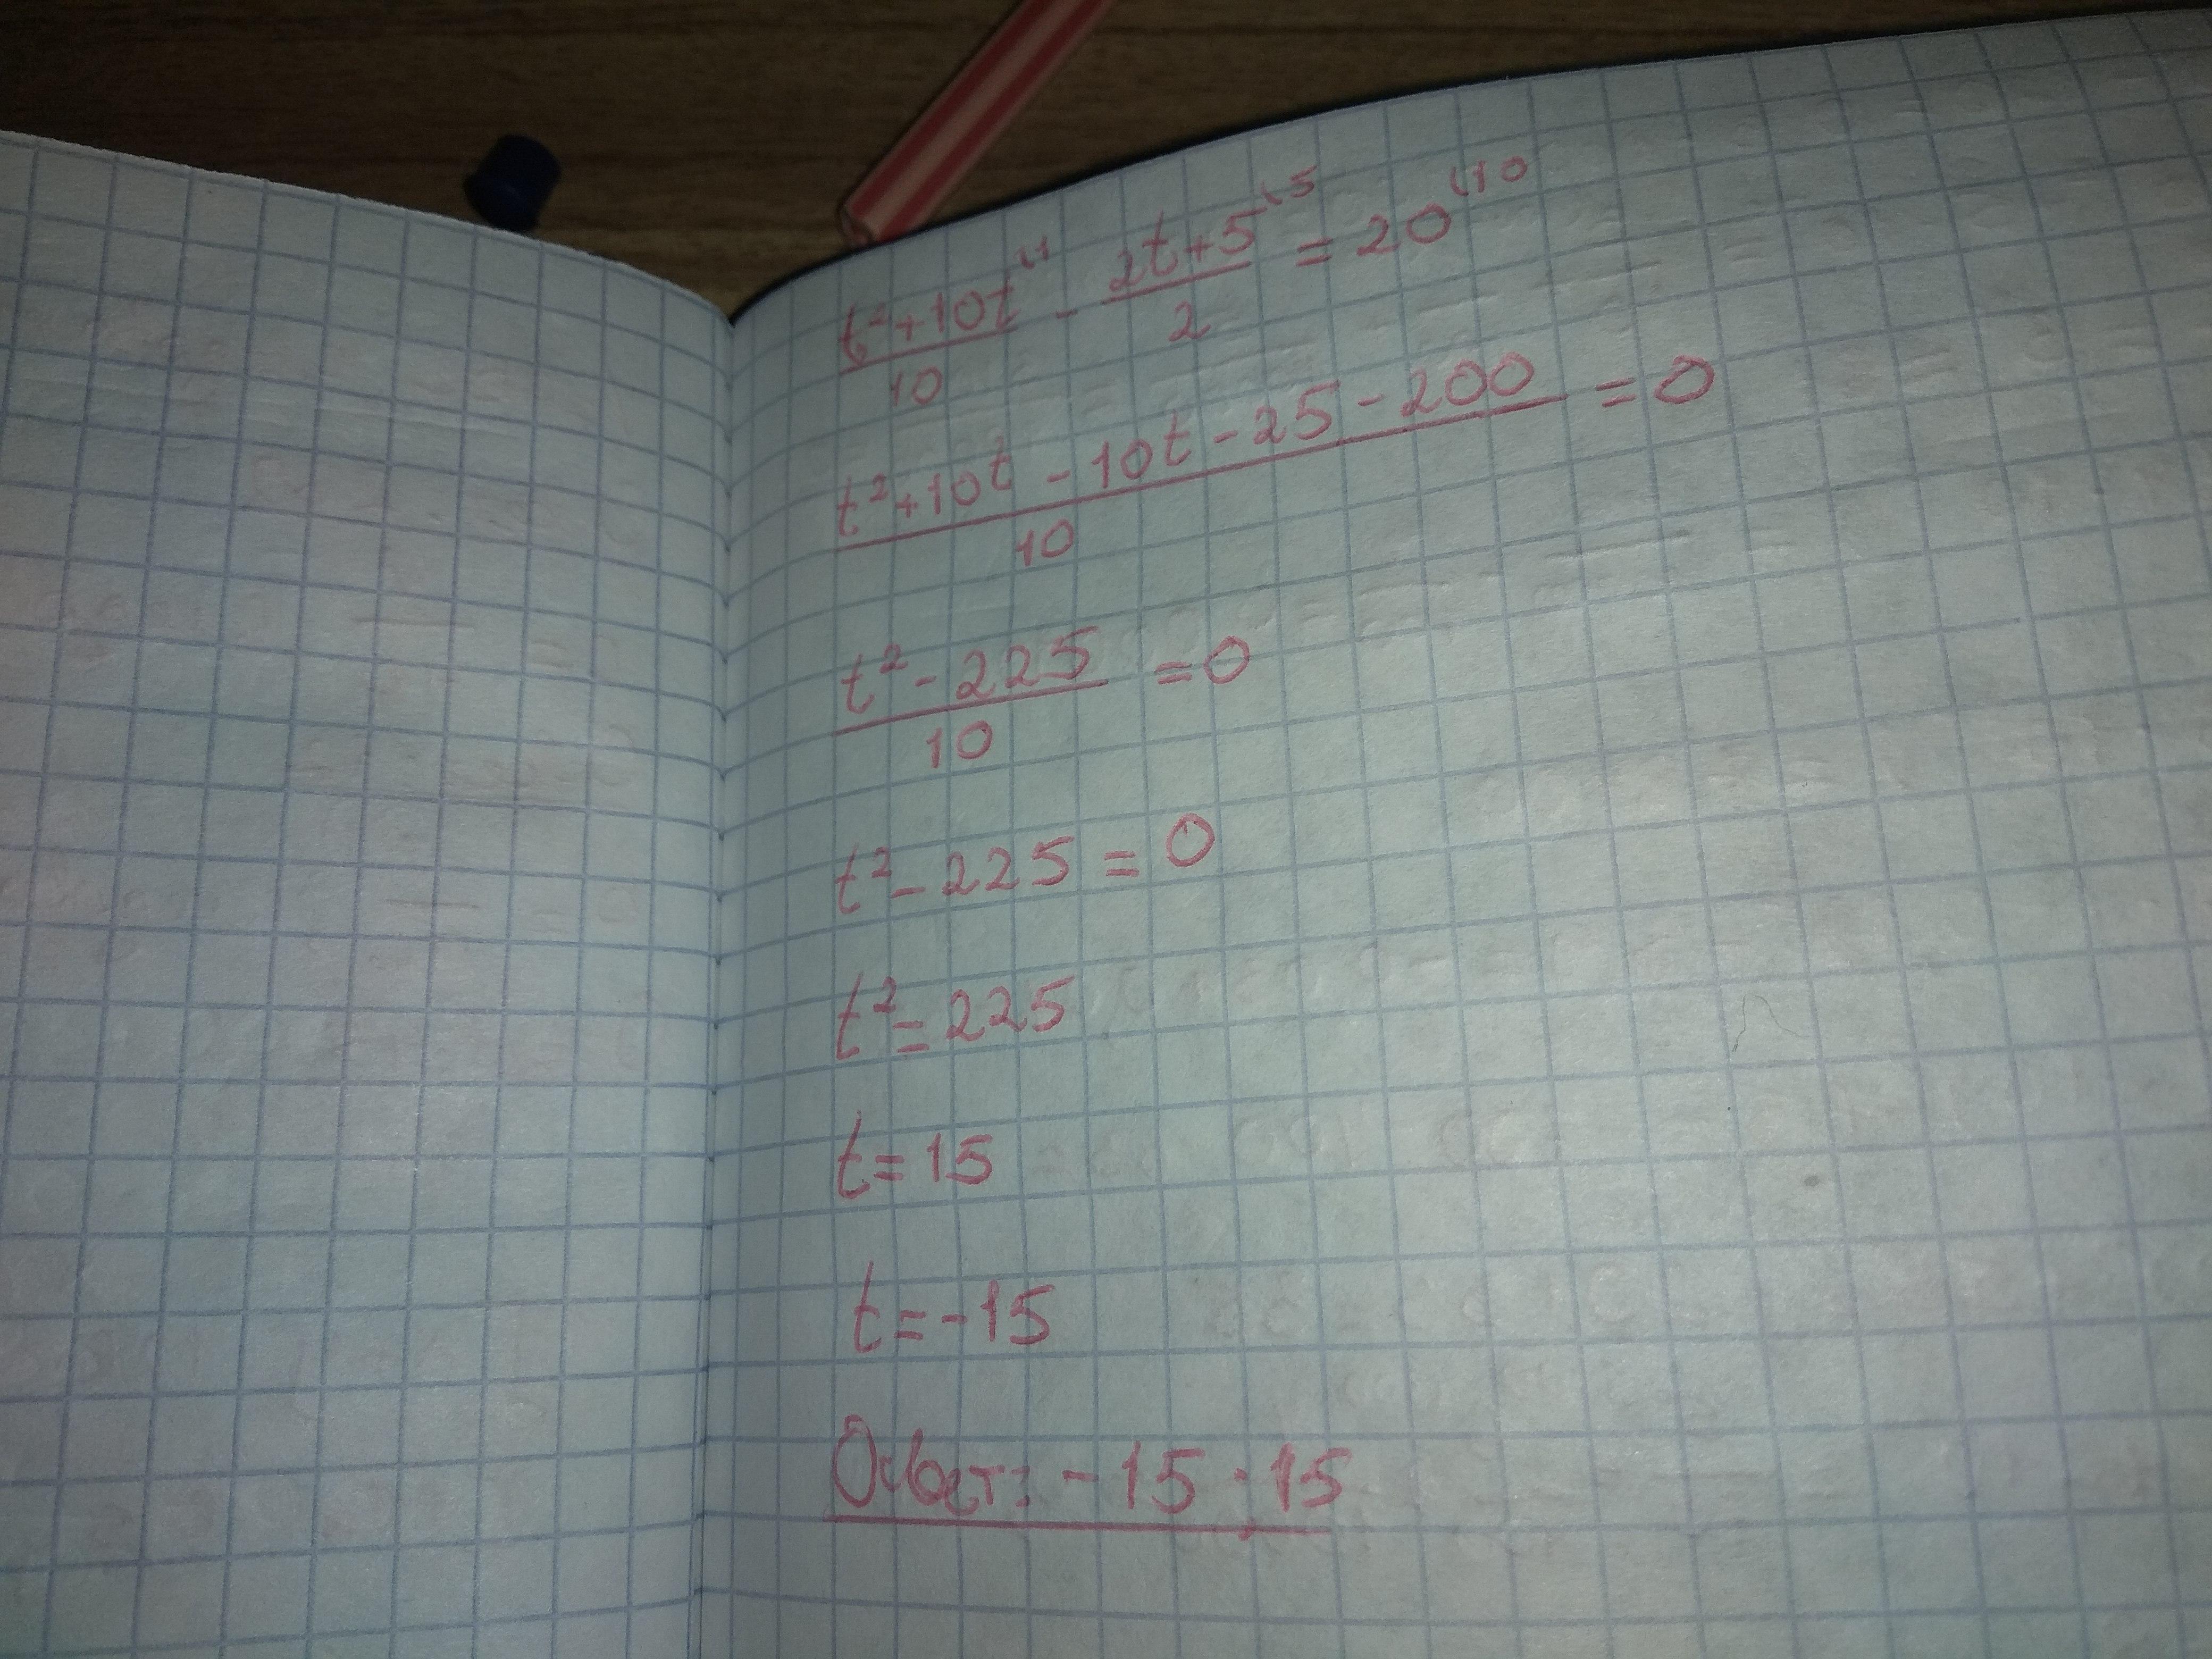 (t²+10t)/10 ⁽¹ - (2t+5)/2 ⁽⁵ = 20 ⁽¹⁰
(t²+10t-10t-25-200)/10 = 0
(t²-225)/10 = 0
t²-225=0
t²=225
t=15
t=-15
Ответ: -15; 15